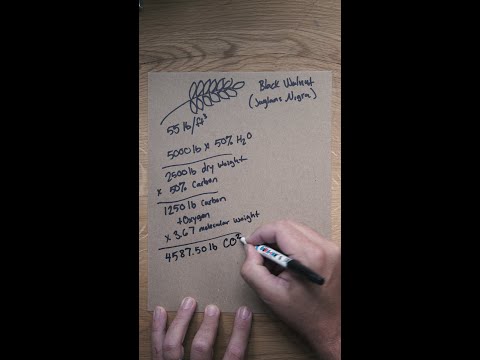 Black Walnut
(Juglans Nigra)
55 lb/ft³
5000 lb x 50% H₂O
2500 lb dry weight
x 50% Carbon
1250 lb Carbon
+Oxygen
x 3.67 molecular weight
4587.50 lb CO²